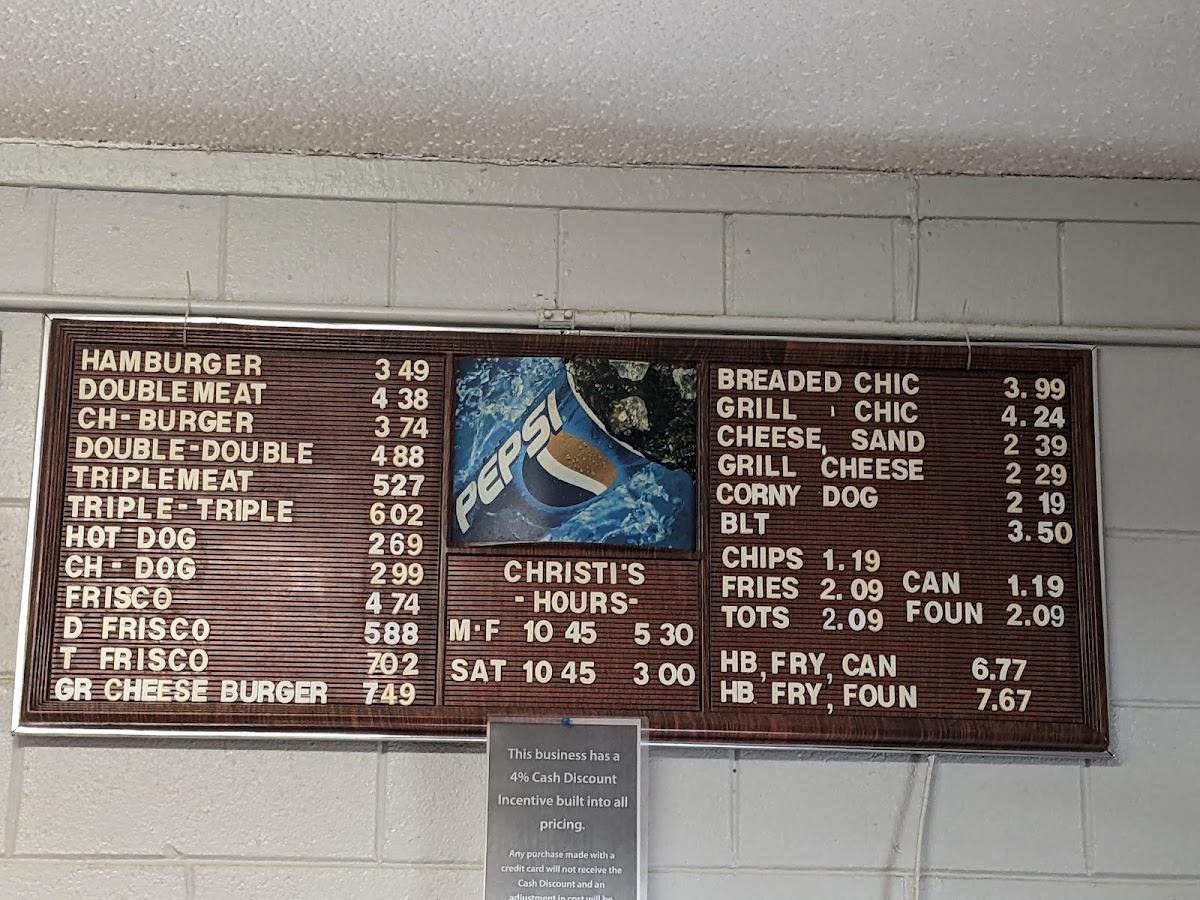 HAMBURGER 3 49
DOUBLE MEAT 4 38
CH-BURGER 3 74
DOUBLE-DOUBLE 4 88
TRIPLEMEAT 527
TRIPLE-TRIPLE 602
HOT DOG 269
CH-DOG 299
FRISCO 4 74
D FRISCO 588
T FRISCO 702
GR CHEESE BURGER 749
PEPSI
CHRISTI'S
-HOURS-
M-F 10 45 5 30
SAT 10 45 3 00
BREADED CHIC 3.99
GRILL ' CHIC 4.24
CHEESE, SAND 2 39
GRILL CHEESE 2 29
CORNY DOG 2 19
BLT 3.50
CHIPS 1.19
FRIES 2.09 CAN 1.19
TOTS 2.09 FOUN 2.09
HB, FRY, CAN 6.77
HB. FRY, FOUN 7.67
This business has a
4% Cash Discount
Incentive built into all
pricing.
Any purchase made with a
credit card will not receive the
Cash Discount and an
adjustment in cost will be